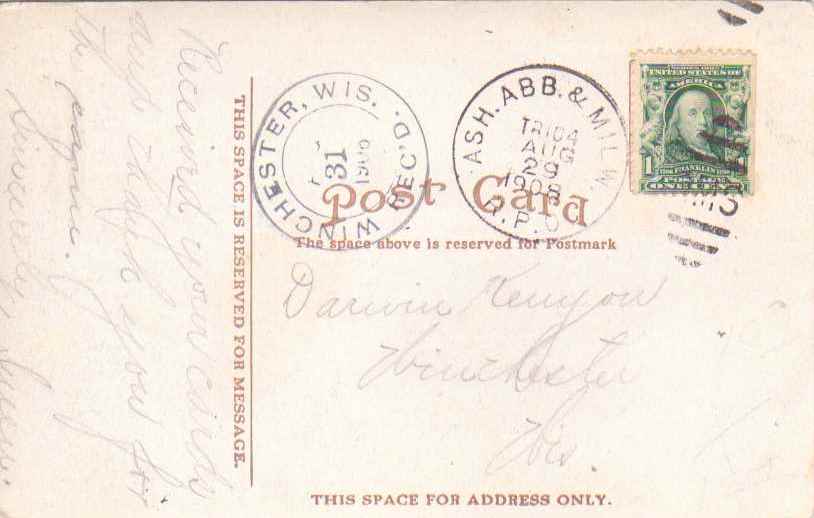 Received your cards
and thank you for
the same.
Sincerely,
THIS SPACE IS RESERVED FOR MESSAGE.
WINCHESTER, WIS. REC'D.
31
ASH. ABB. & MILW.
R.P.O.
TR104
AUG
29
1908
UNITED STATES OF
AMERICA
1 FRANKLIN
POSTAGE
ONE CENT
RMS
Post Card
The space above is reserved for Postmark
Darwin Kenyon
Winchester
Wis.
THIS SPACE FOR ADDRESS ONLY.